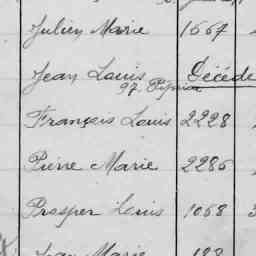 Julien Marie 1667
Jean Louis Décédé
Français Louis 2228
Pierre Marie 2286
Prosper Louis 1068
Jean Marie